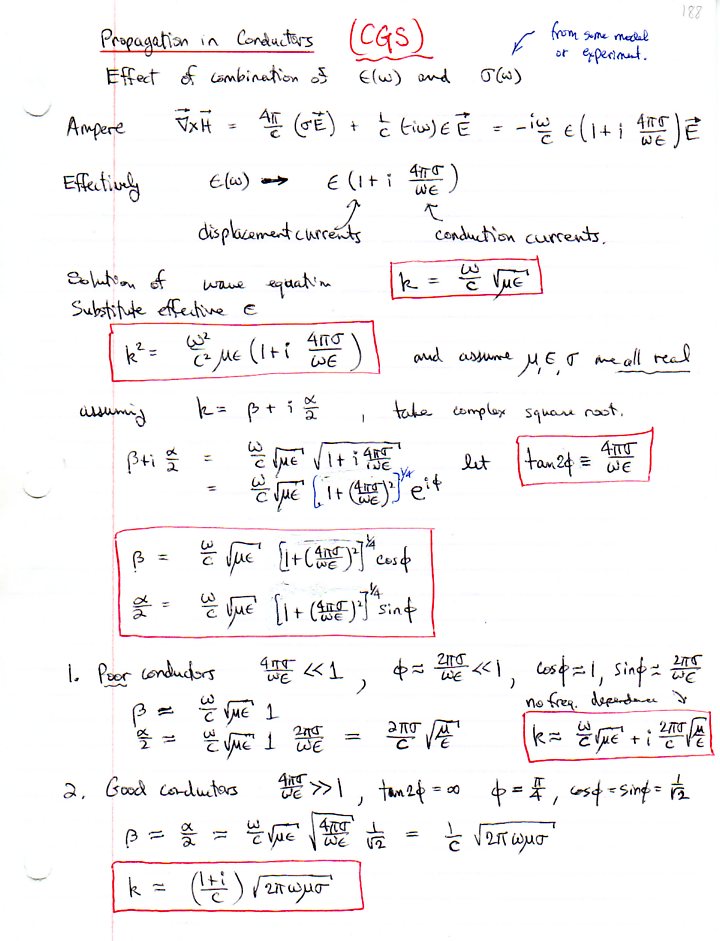 188
Propagation in Conductors (CGS)
from some model
or experiment.
Effect of combination of ε(ω) and σ(ω)
Ampere ∇×H = 4π/c (σE) + 1/c (-iω) ε E = -iω/c ε (1 + i 4πσ/ωε) E
Effectively ε(ω) → ε (1 + i 4πσ/ωε)
displacement currents conduction currents.
Solution of wave equation k = ω/c √με
Substitute effective ε
k² = ω²/c² με (1 + i 4πσ/ωε) and assume μ, ε, σ are all real
assuming k = β + i α/2 , take complex square root.
β + i α/2 = ω/c √με √1 + i 4πσ/ωε let tan2φ ≡ 4πσ/ωε
= ω/c √με [1 + (4πσ/ωε)²]^1/4 e^iφ
β = ω/c √με [1 + (4πσ/ωε)²]^1/4 cosφ
α/2 = ω/c √με [1 + (4πσ/ωε)²]^1/4 sinφ
1. Poor conductors 4πσ/ωε << 1 , φ ≈ 2πσ/ωε << 1 , cosφ ≈ 1, sinφ ≈ 2πσ/ωε
no freq. dependence
β ≈ ω/c √με 1
α/2 ≈ ω/c √με 1 2πσ/ωε = 2πσ/c √μ/ε k ≈ ω/c √με + i 2πσ/c √μ/ε
2. Good conductors 4πσ/ωε >> 1 , tan2φ = ∞ φ = π/4 , cosφ = sinφ = 1/√2
β ≈ α/2 ≈ ω/c √με √4πσ/ωε 1/√2 = 1/c √2πωμσ
k ≈ (1+i/c) √2πωμσ